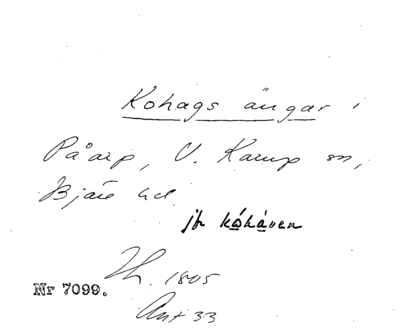 Kohags ängar i
Påarp, V. Karup sn,
Bjäre hd.
jfr kóháven
Th. 1805
Nr 7099.
Ant 33